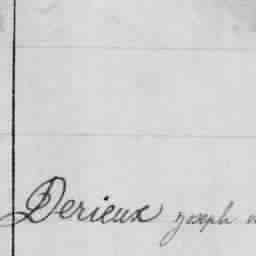 Derieux Joseph